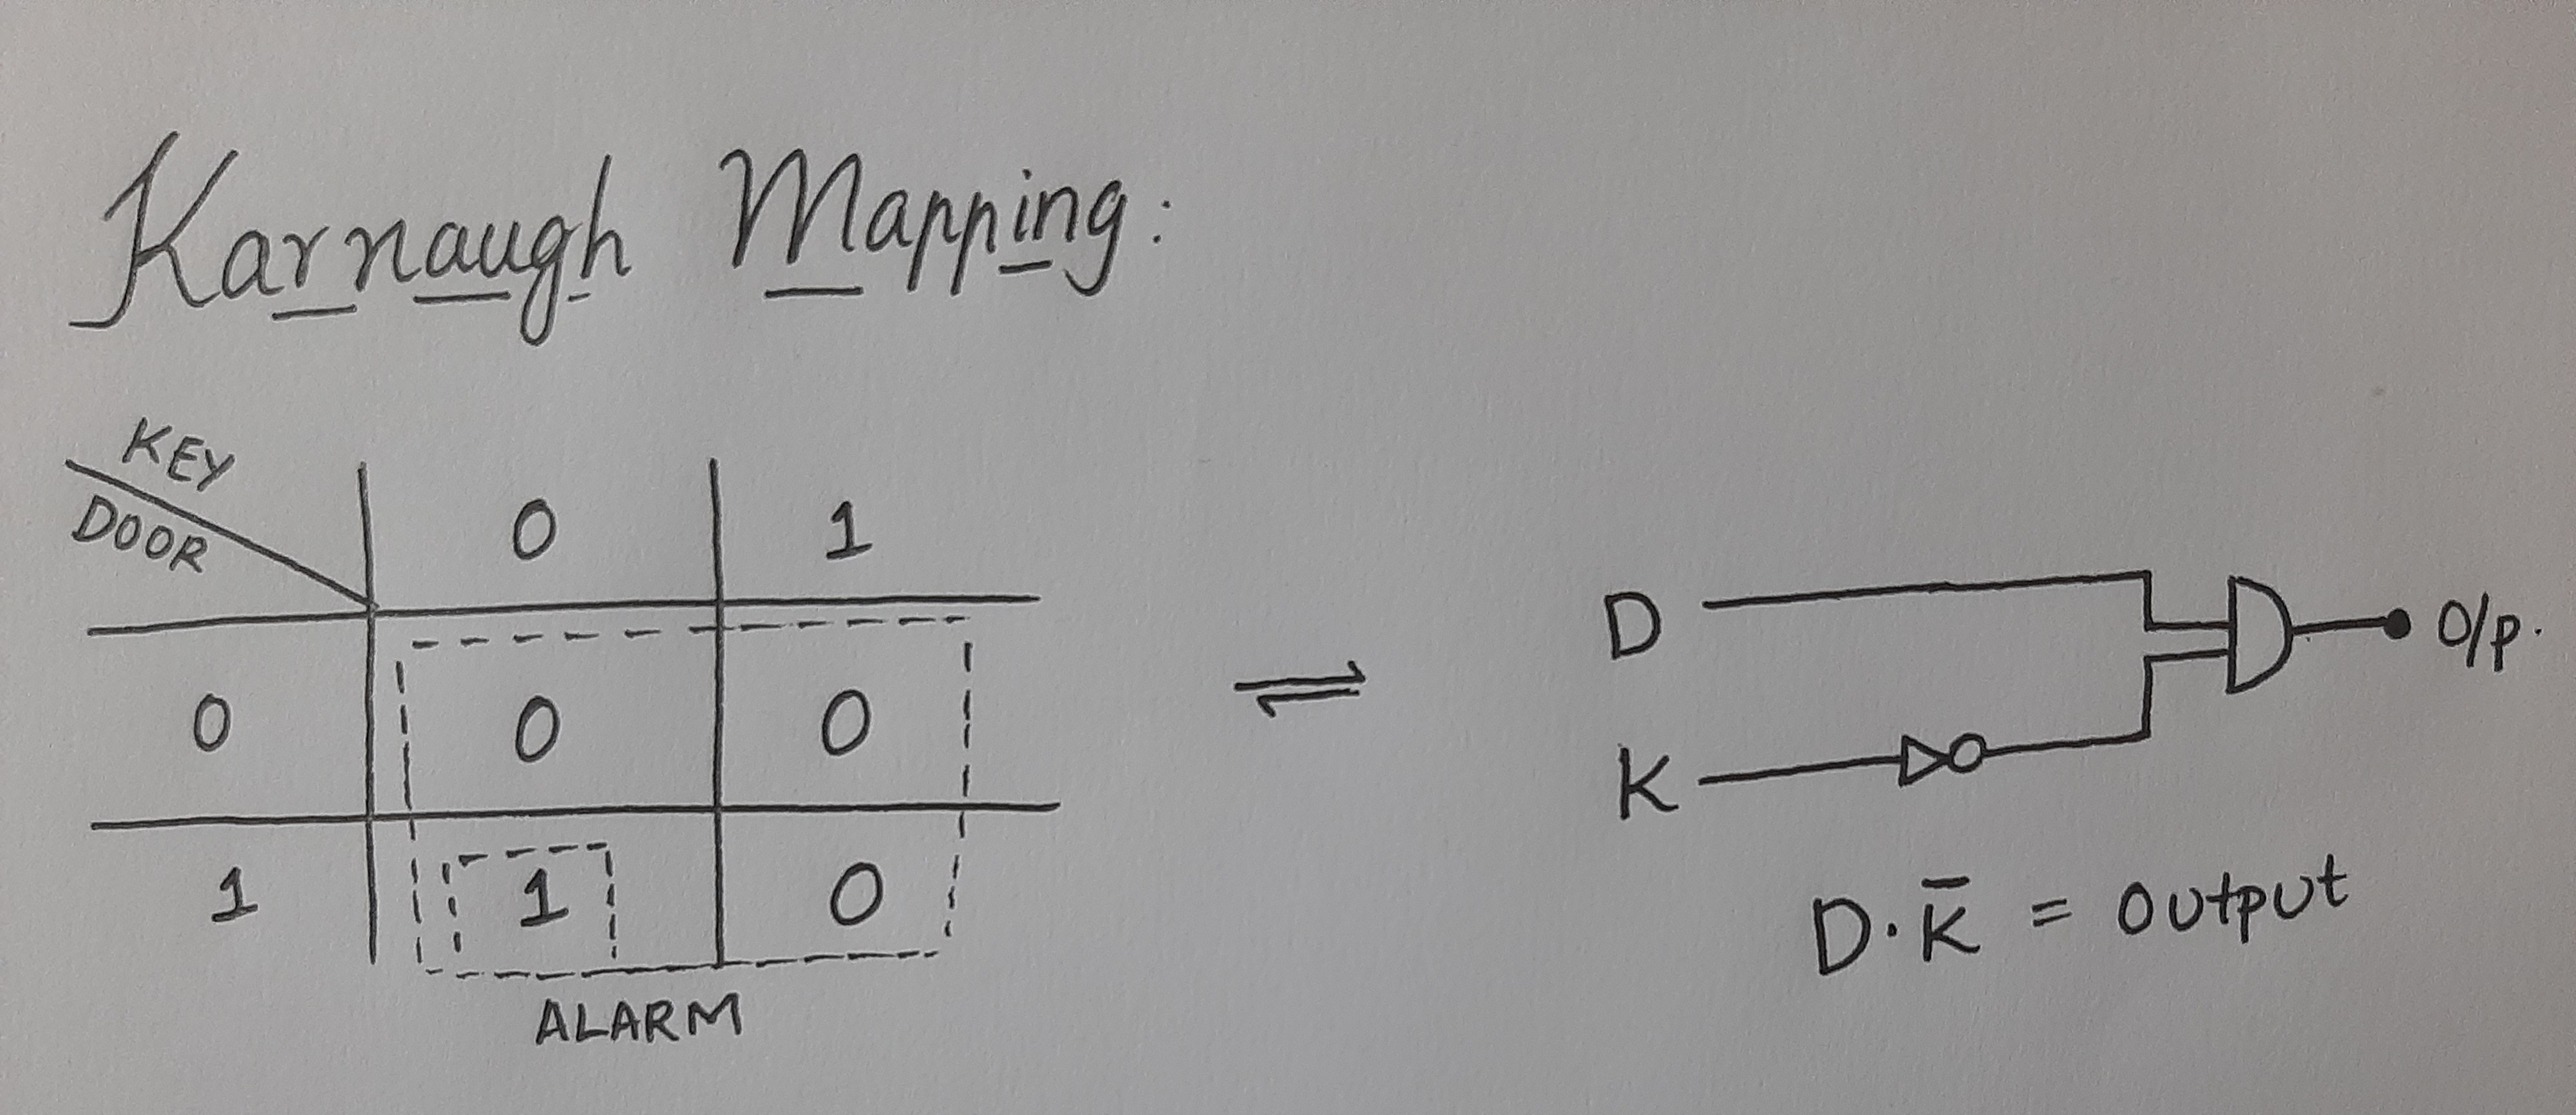 Karnaugh Mapping:
KEY
DOOR
0 1
0 0 0
1 1 0
ALARM
⇌
D
K
O/p.
D·K̄ = output